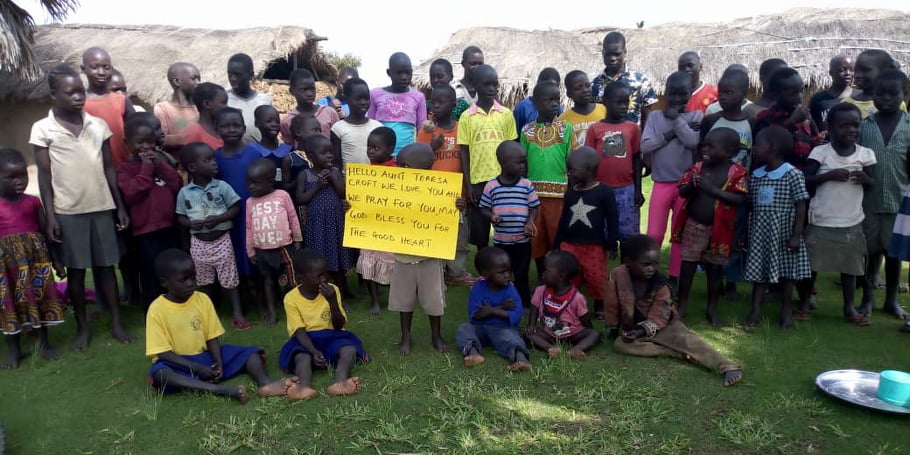 HELLO AUNT TERESA
CROFT WE LOVE YOU AND
WE PRAY FOR YOU, MAY
GOD BLESS YOU FOR
THE GOOD HEART
BEST
DAY
EVER